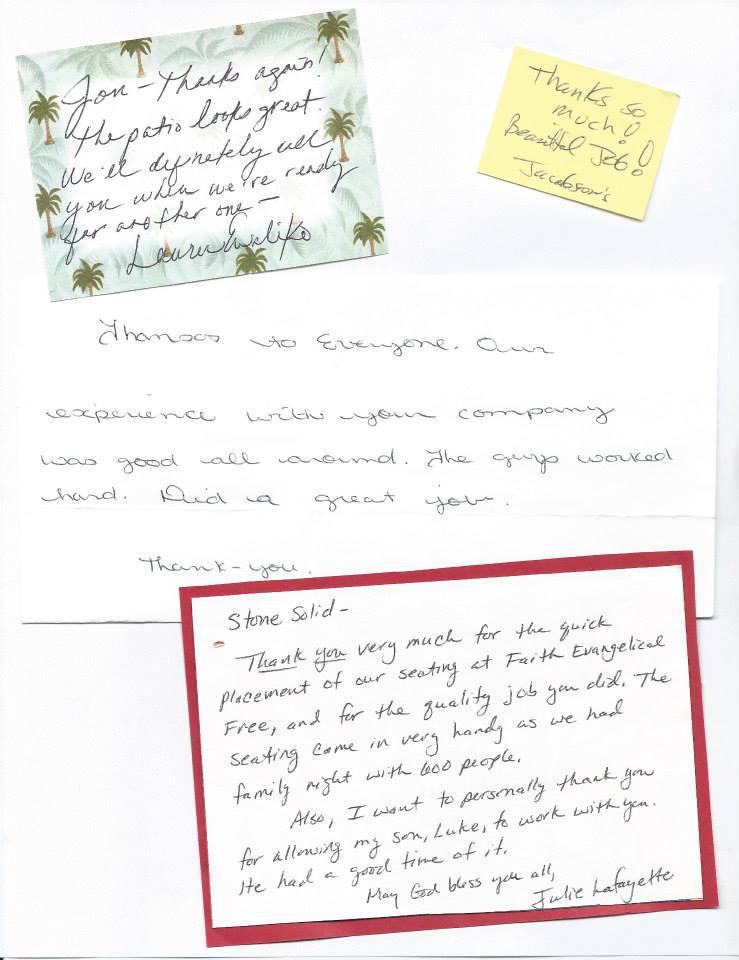 Jon – Thanks again!
The patio looks great.
We'll definetely call
you when we're ready
for another one –
Lauren
Thanks so
much!!
Beautiful Job!
Jacobson's
Thanks to Everyone. Our
experience with your company
was good all around. The guys worked
hard. Did a great job.
Thank-you.
Stone Solid-
Thank you very much for the quick
placement of our seating at Faith Evangelical
Free, and for the quality job you did. The
seating came in very handy as we had
family night with 600 people.
Also, I want to personally thank you
for allowing my son, Luke, to work with you.
He had a good time of it.
May God bless you all,
Julie Lafayette